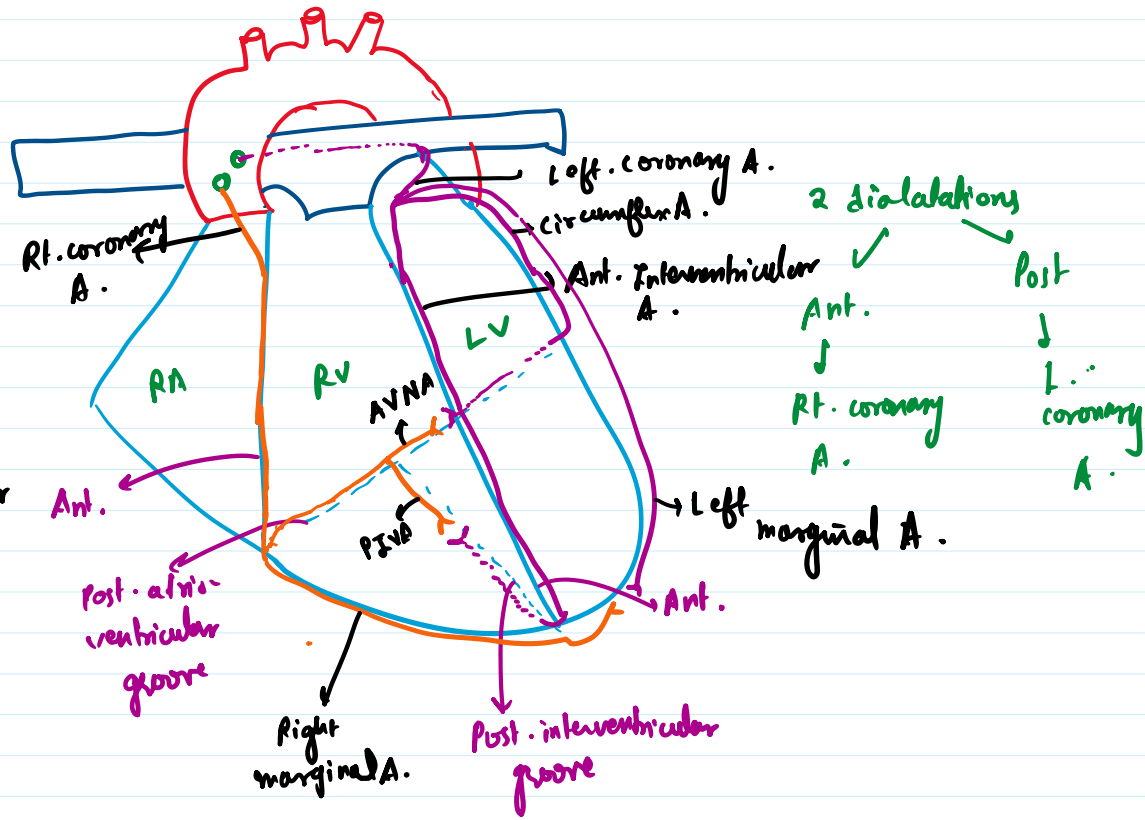 Left. coronary A.
circumflex A.
Rt. coronary
A.
Ant. Interventricular
A.
2 dialatations
Ant.
Post
Rt. coronary
A.
L.
coronary
A.
RA
RV
LV
AVNA
PIVA
Ant.
Post. atrio-
ventricular
groove
Left
marginal A.
Ant.
Right
marginal A.
Post. interventricular
groove